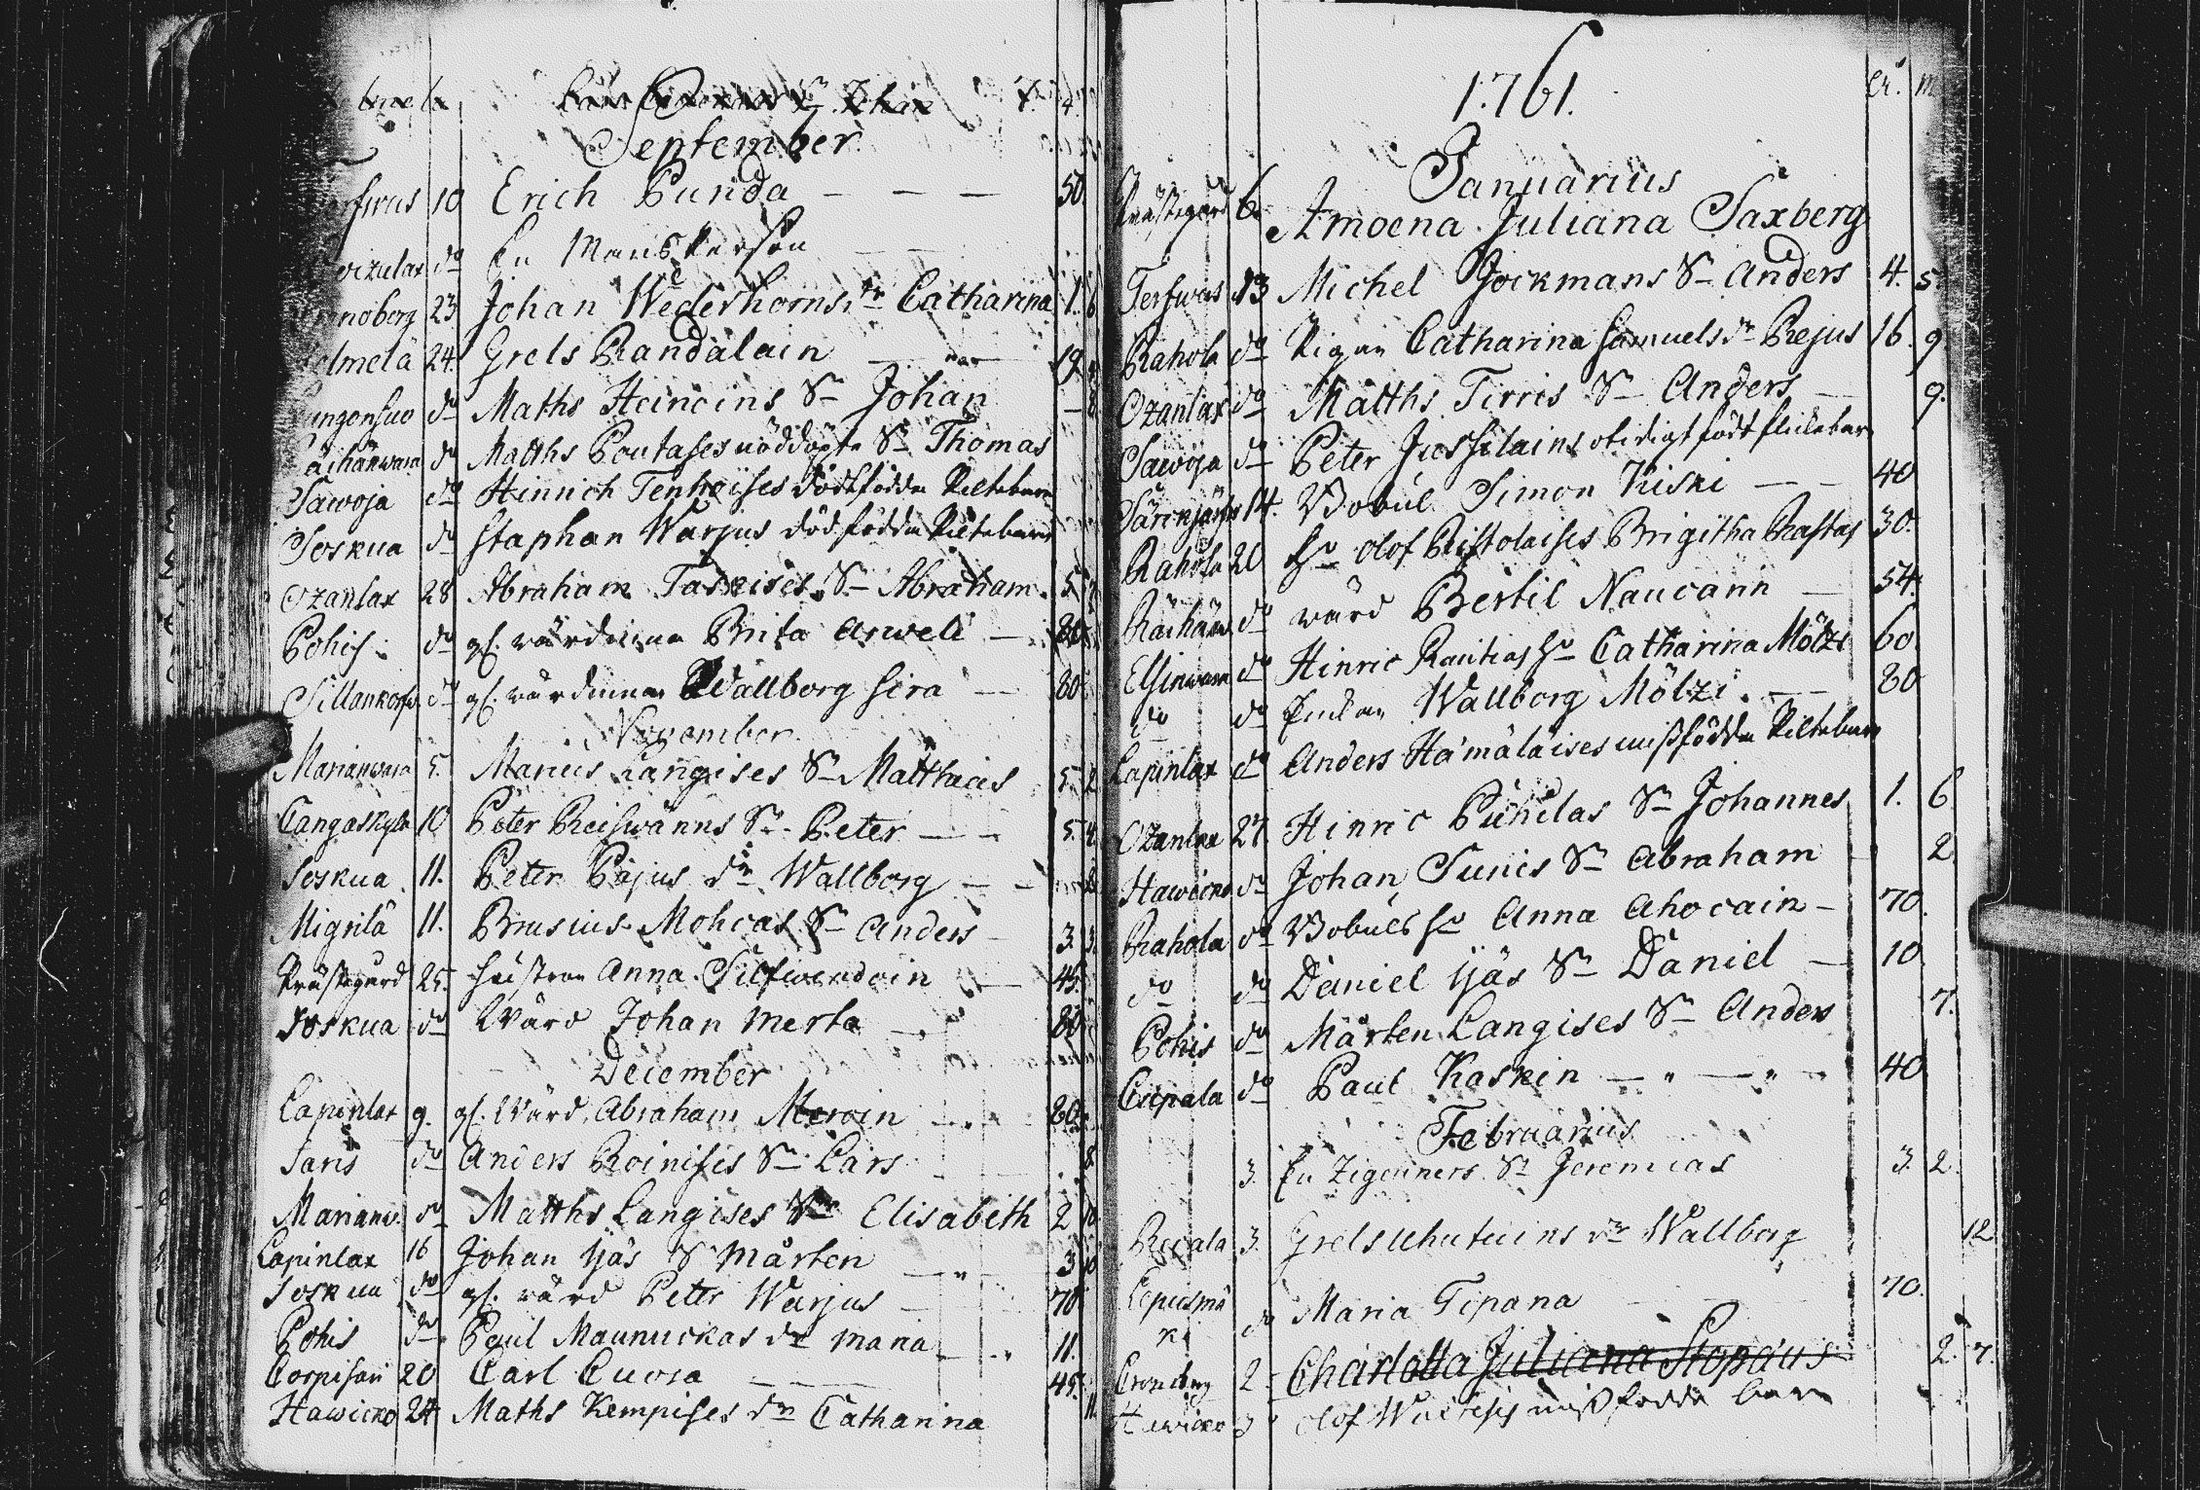 September
10 Erich Punda — — — 50.
do En Mans Person
23 Johan Wederhorns dr Catharina 1. 6
24. Grels Randalain — 19
do Maths Heincins Sn Johan — 8
do Matths Poutases nöddöpte Sn Thomas
Sawoja do Hinrich Tenhoises dödfödda Piltebarn
Soskua do Staphan Warjus dödfödda Piltebarn
Ozanlax 28 Abraham Taskises Sn Abraham 5.
Pohis do gl. värdinna Brita Arweli — 80
Sillankorfw. do gl. värdinna Wallborg Sira — 80
November
Marianwara 5. Marcus Langises Sn Matthaeus 5. 2
Cangaskylä 10 Peter Reiswänns Sn Peter — 5. 4
Soskua 11. Peter Pajus dr Wallborg — —
Migrilä 11. Brusius Mohcas Sn Anders 3. 3.
Prästegård 25. Hustrun Anna Silfwendoin — 45.
Soskua do Wärd Johan Merta — 80
December
Lapinlax 9. gl. Wärd Abraham Meroin — 80.
Saris do Anders Roinises Sn Lars 8.
Marianw. do Matths Langises dr Elisabeth 2 10
Lapinlax 16 Johan Ijäs Sn Mårten — 3 10
Soskua do gl. värd Peter Warjus — 70.
Pohis do Paul Maunuckas dr Maria 11.
Corpisari 20 Carl Cuosa — 45.
Hawicko 24 Maths Kempises dr Catharina 11.
1761.
År. M
Januarius
Prästegård 6. Amoena Juliana Saxberg
Terfwas 13 Michel Jockmans Sn Anders 4. 5.
Rahola do Pigan Catharina Samuels dr Pejus 16. 9.
Ozanlax do Matths Tirris Sn Anders — 9.
Sawoja do Peter Jussilains otidigt födt flickebarn
Särenjärfwi 14. Bobul Simon Kiski — — 40
Rahola 20 Hu Olof Ristolaises Brigitha Rastas 30.
Räihäw. do wärd Bertil Naucarin — 54.
Elsinwara do Hinric Rautias Hu Catharina Mölzi 60
do do Enkan Wallborg Mölzi — — 80
Lapinlax do Anders Hämäläises missfödda Piltebarn
Ozanlax 27. Hinric Puhilas Sn Johannes 1. 6
Hawicko do Johan Sunis Sn Abraham 2.
Rahola do Bobuls Hu Anna Ahocain — 70.
do do Daniel Ijäs Sn Daniel — 10
Pohis do Mårten Langises Sn Anders 7.
do Paul Kaskin — 40
Februarius
3. En Zigenners Sn Jeremias 3. 2.
3. Grels Uhutuins dr Wallborg 12
do Maria Tipana 70.
2 Charlotta Juliana Stopaus 2. 7.
Hawicko 3 Olof missfödda barn